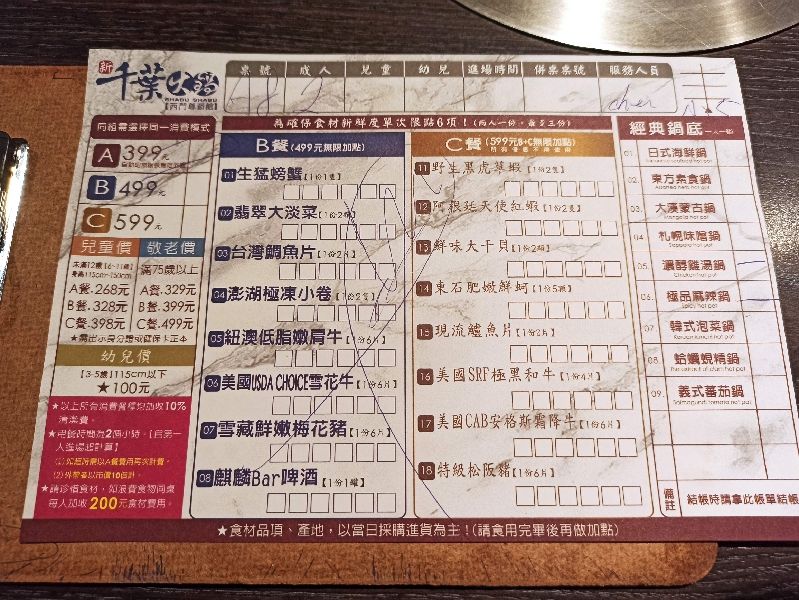 新 千葉
SHABU SHABU
【西門尊爵館】
桌號 成人 兒童 幼兒 進場時間 併桌桌號 服務人員
2 chen
為確保食材新鮮度單次限點6項！(兩人一份，最多三份)
同組需選擇同一消費模式
A 399元
B 499元
C 599元
兒童價 敬老價
未滿12歲【6-11歲】
身高115cm~150cm
滿75歲以上
A餐‧268元 A餐‧329元
B餐‧328元 B餐‧399元
C餐‧398元 C餐‧499元
★需出示身分證或健保卡正本
幼兒價
【3-5歲】115cm以下
★100元
★以上所有消費皆須加收10%
清潔費。
★用餐時間為2個小時。【自第一
人進場起計算】
(1)如超時需以A餐費用再次計費。
★請珍惜食材，如浪費食物同桌
每人加收200元食材費用。
B餐(499元無限加點)
01 生猛螃蟹【1份1隻】
02 翡翠大淡菜【1份2顆】
03 台灣鯛魚片【1份2片】
04 澎湖極凍小卷【1份2隻】
05 紐澳低脂嫩肩牛【1份6片】
06 美國USDA CHOICE雪花牛【1份6片】
07 雪藏鮮嫩梅花豬【1份6片】
08 麒麟Bar啤酒【1份1罐】
C餐(599元B+C無限加點)
11 野生黑虎草蝦【1份2隻】
12 阿根廷天使紅蝦【1份2隻】
13 鮮味大干貝【1份2顆】
14 東石肥嫩鮮蚵【1份5顆】
15 現流鱸魚片【1份2片】
16 美國SRF極黑和牛【1份4片】
17 美國CAB安格斯霜降牛【1份6片】
18 特級松阪豬【1份6片】
經典鍋底 一人一鍋
01. 日式海鮮鍋
02. 東方素食鍋
03. 大漠蒙古鍋
04. 札幌味噌鍋
05. 濃醇雞湯鍋
06. 極品麻辣鍋
07. 韓式泡菜鍋
08. 蛤蠣蜆精鍋
09. 義式蕃茄鍋
備註 結帳時請拿此帳單結帳
★食材品項、產地，以當日採購進貨為主！(請食用完畢後再做加點)